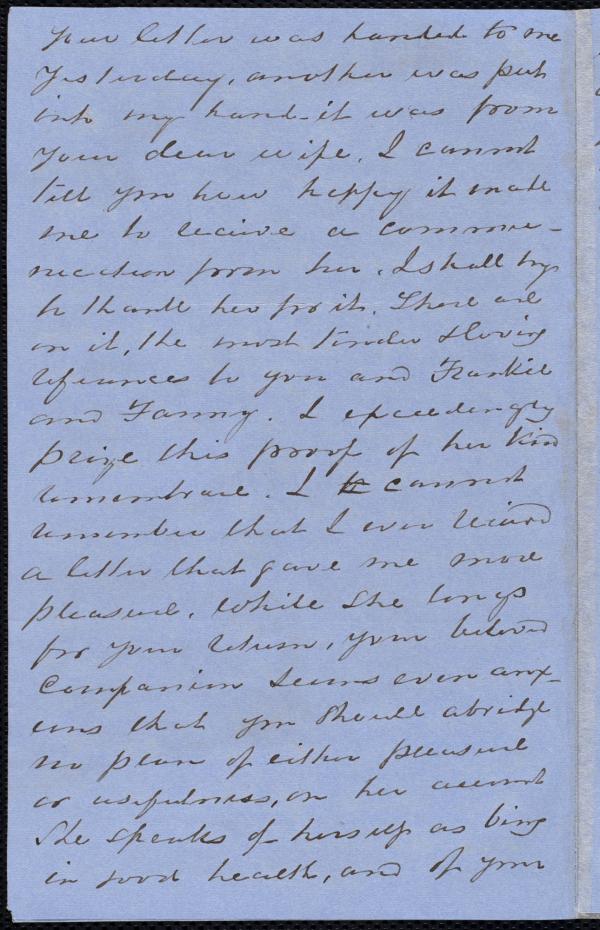 Your letter was handed to me
yesterday, another was put
into my hand - it was from
your dear wife. I cannot
tell you how happy it made
me to receive a commu-
nication from her. I shall try
to thank her for it. There are
in it, the most tender & loving
references to you and Frankie
and Fanny. I exceedingly
prize this proof of her kind
remembrance. I cannot
remember that I ever received
a letter that gave me more
pleasure. While she longs
for your return, your beloved
companion seems even anx-
ious that you should abridge
no plan of either pleasure
or usefulness, on her account
She speaks of herself as being
in good health, and of your